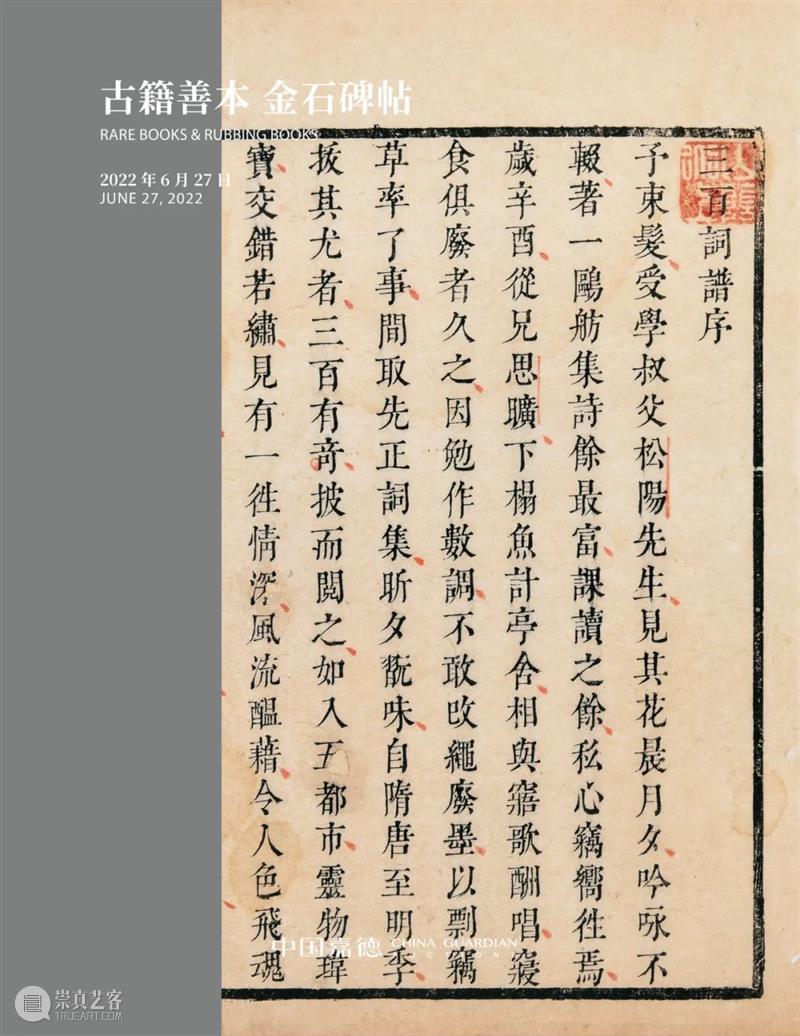 古籍善本 金石碑帖
RARE BOOKS & RUBBING BOOKS
2022 年 6 月 27 日
JUNE 27, 2022
三百詞譜序
予束髮受學叔父松陽先生見其花晨月夕吟咏不
輟著一鷗舫集詩餘最富課讀之餘私心竊嚮徃焉
歲辛酉從兄思曠下榻魚計亭舍相與寤歌酬唱寢
食俱廢者久之因勉作數調不敢改繩廢墨以剽竊
草率了事間取先正詞集昕夕翫味自隋唐至明季
拔其尤者三百有竒披而閲之如入五都市靈物瑋
寶交錯若繡見有一徃情深風流醖藉令人色飛魂
中国嘉德 CHINA GUARDIAN
崇真艺客
TRUEART.COM